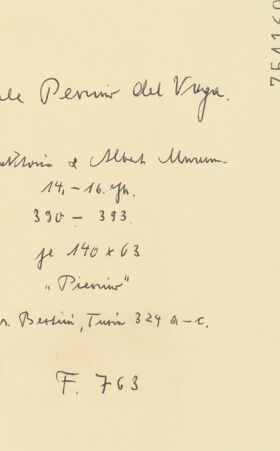 754160
ule Perino del Vaga.
Viktoria & Albert Museum
14. - 16. Jh.
390 - 393
je 140 x 63
„Pierino"
s. Bertini, Turin 324 a-c.
F. 763